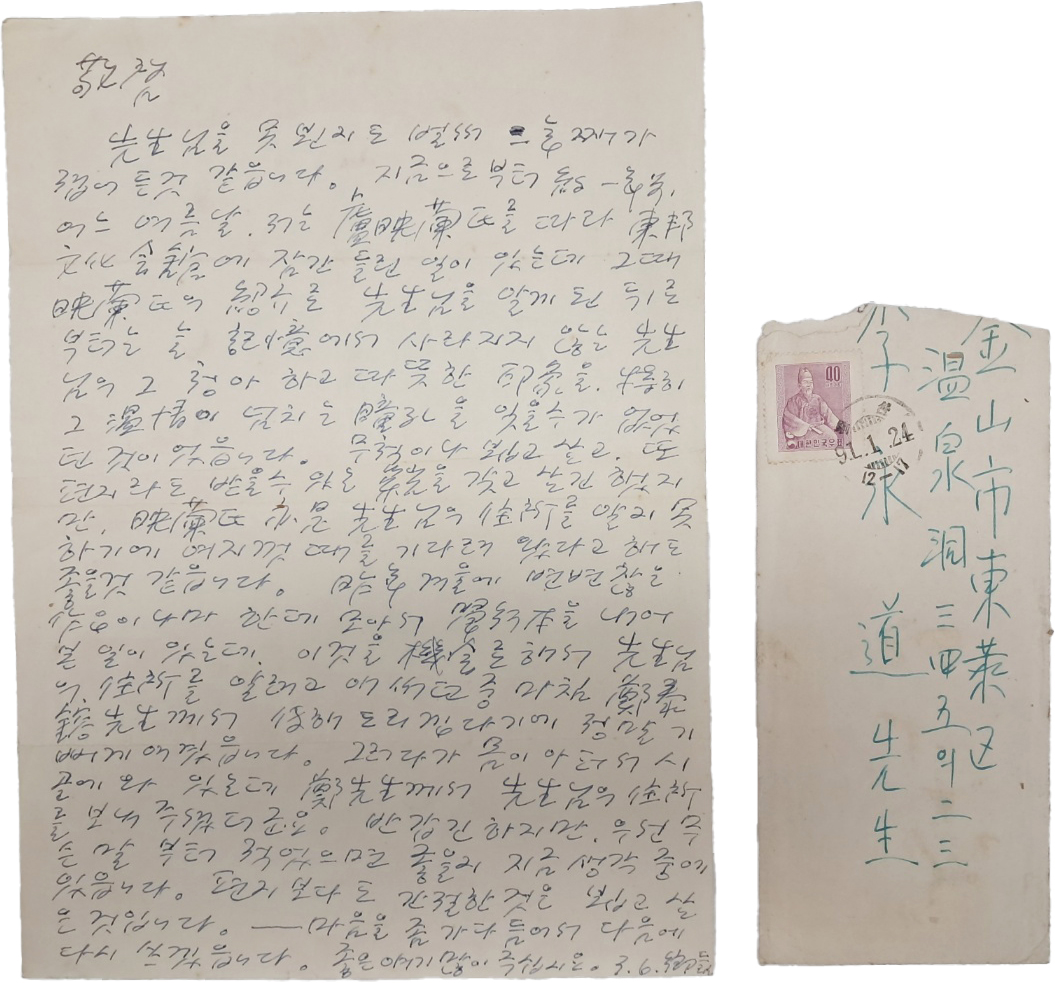 敬具
先生님을 못 뵌지도 벌써 二年째가
접어 든것 같읍니다。 지금으로부터 一年前,
어느 여름날. 저는 盧映蘭氏를 따라 東邦
文化會舘에 잠간 들린 일이 있는데 그때
映蘭氏의 紹介로 先生님을 알게 된 뒤로
부터는 늘 記憶에서 사라지지 않는 先生
님의 그 청아 하고 따뜻한 印象을.
그 넘치는 을 잊을수가 없었
던 것이 있읍니다。 무척이나 뵙고 싶고. 또
편지라도 받을수 있는 갖고 싶긴 했지
만, 映蘭氏 亦是 先生님의 住所를 알지 못
하기에 여지껏 때를 기다려 왔다고 해도
좋을것 같읍니다。 昨年 겨울에 변변찮은
作品이나마 한데 모아서 單行本을 내어
본 일이 있는데. 이것을 機會로 해서 先生님
의. 住所를 알려고 애쓰던 중 마침 鄭
先生께서 傳해 드리 다기에 정말 기
쁘게 여겼읍니다。 그러다가 몸이 아퍼서 시
골에 와 있는데 鄭先生께서 先生님의 住所
를 보내 주셨더군요。 반갑긴 하지만. 우선 무
슨 말 부터 적었으면 좋을지 지금 생각 중에
있읍니다。 편지 보다도 간절한 것은 뵙고 싶
은 것입니다。 ── 마음을 좀 가다듬어서 다음에
다시 쓰겠읍니다。 좋은 얘기 많이 주십시요。 3.6.
金山市東萊区
温泉洞三四五의二三
李永道 先生
00
대한민국우표
91.1.24
12-17